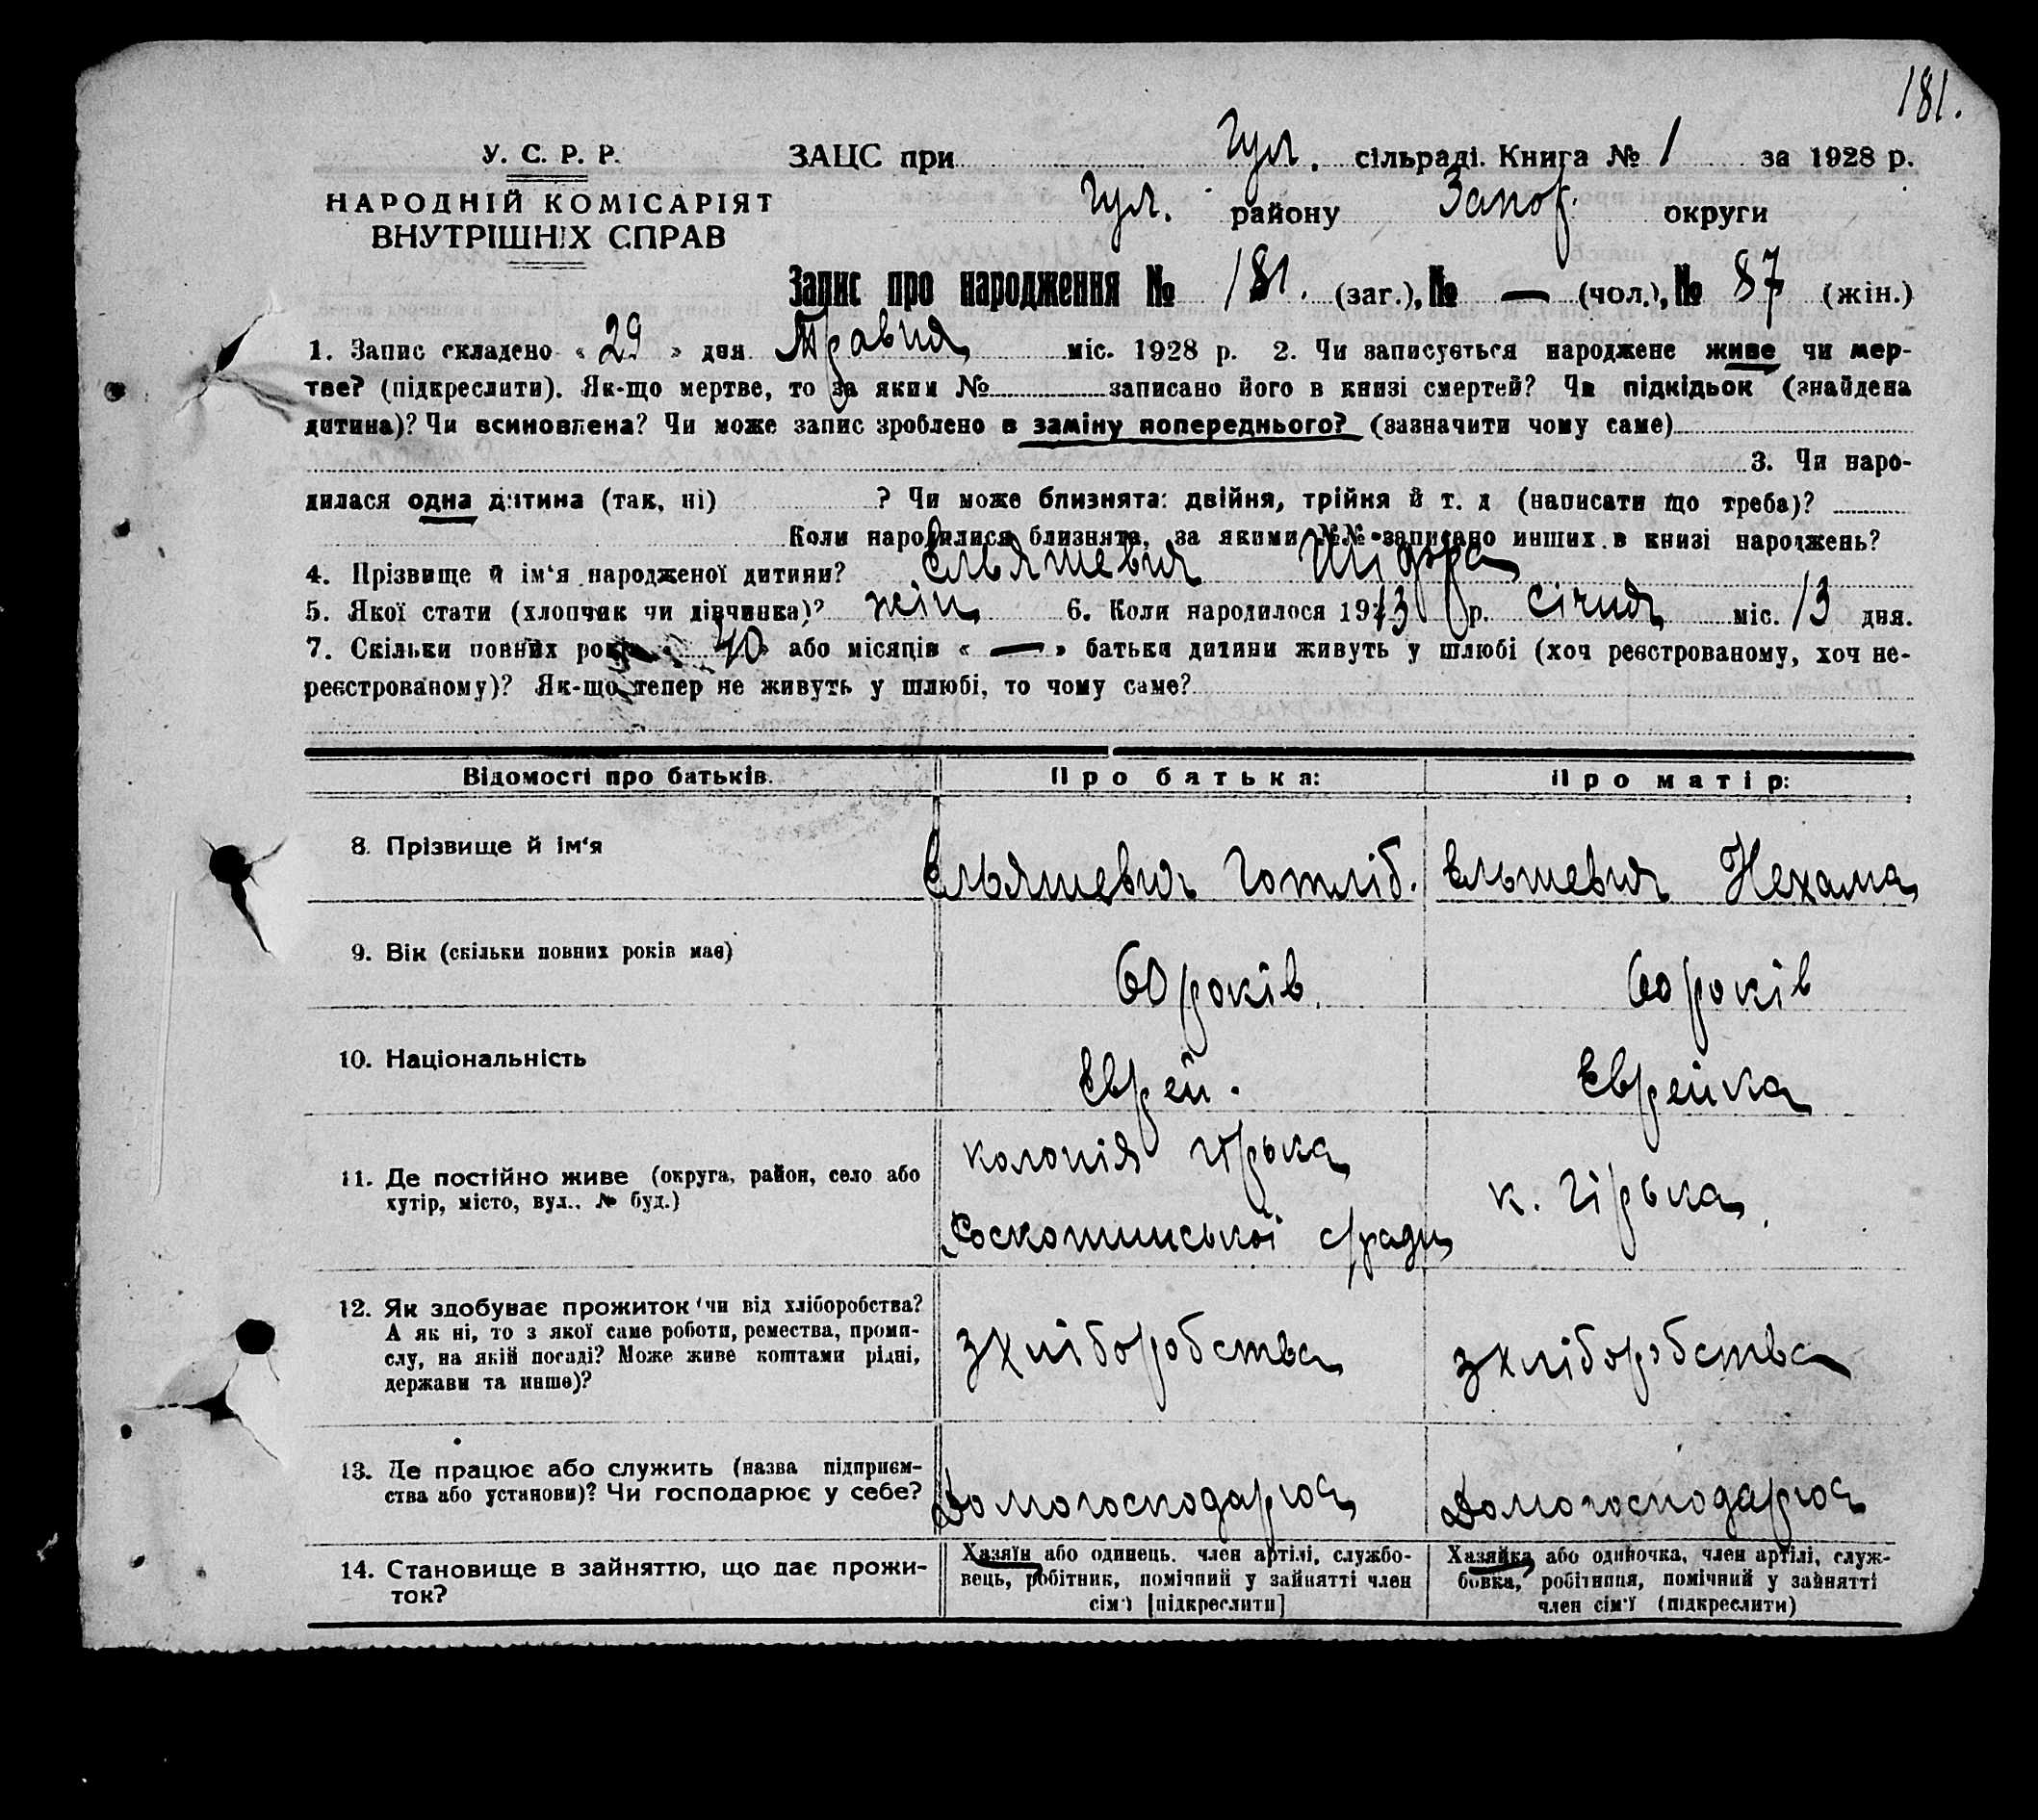 181.
У. С. Р. Р.
НАРОДНІЙ КОМІСАРІЯТ
ВНУТРІШНІХ СПРАВ
ЗАЦС при Гул. сільраді. Книга № 1 за 1928 р.
Гул. району Запор. округи
Запис про народження № 181. (заг.), № — (чол.), № 87 (жін.)
1. Запис складено « 29 » дня Травня міс. 1928 р. 2. Чи записується народжене живе чи мер-
тве? (підкреслити). Як-що мертве, то за яким № записано його в книзі смертей? Чи підкідьок (знайдена
дитина)? Чи всиновлена? Чи може запис зроблено в заміну попереднього? (зазначити чому саме)
3. Чи наро-
дилася одна дитина (так, ні) ? Чи може близнята: двійня, трійня й т. д (написати що треба)?
Коли народилися близнята, за якими №№ записано инших в книзі народжень?
4. Прізвище й ім‘я народженої дитини? Ельяшевич
5. Якої стати (хлопчик чи дівчинка)? жін 6. Коли народилося 1913 р. січня міс. 13 дня.
7. Скільки повних років 40 або місяців « — » батьки дитини живуть у шлюбі (хоч реєстрованому, хоч не-
реєстрованому)? Як-що тепер не живуть у шлюбі, то чому саме?
Відомості про батьків. Про батька: Про матір:
8. Прізвище й ім‘я Ельяшевич Готліб. Ельшевич Нехама
9. Вік (скільки повних років має) 60 років. 60 років
10. Національність Еврей. Еврейка
11. Де постійно живе (округа, район, село або
хутір, місто, вул., № буд.)
колонія гірька
с/ради
к. гірька
12. Як здобуває прожиток чи від хліборобства?
А як ні, то з якої саме роботи, ремества, проми-
слу, на якій посаді? Може живе коштами рідні,
держави та инше)?
з хліборобства
з хліборобства
13. Де працює або служить (назва підприєм-
ства або установи)? Чи господарює у себе?
Домогосподарює
Домогосподарює
14. Становище в зайняттю, що дає прожи-
ток?
Хазяїн або одинець. член артілі, службо-
вець, робітник, помічний у зайнятті член
сім‘ї [підкреслити]
Хазяйка або одиночка, член артілі, служ-
бовка, робітниця, помічний у зайнятті
член сім‘ї (підкреслити)